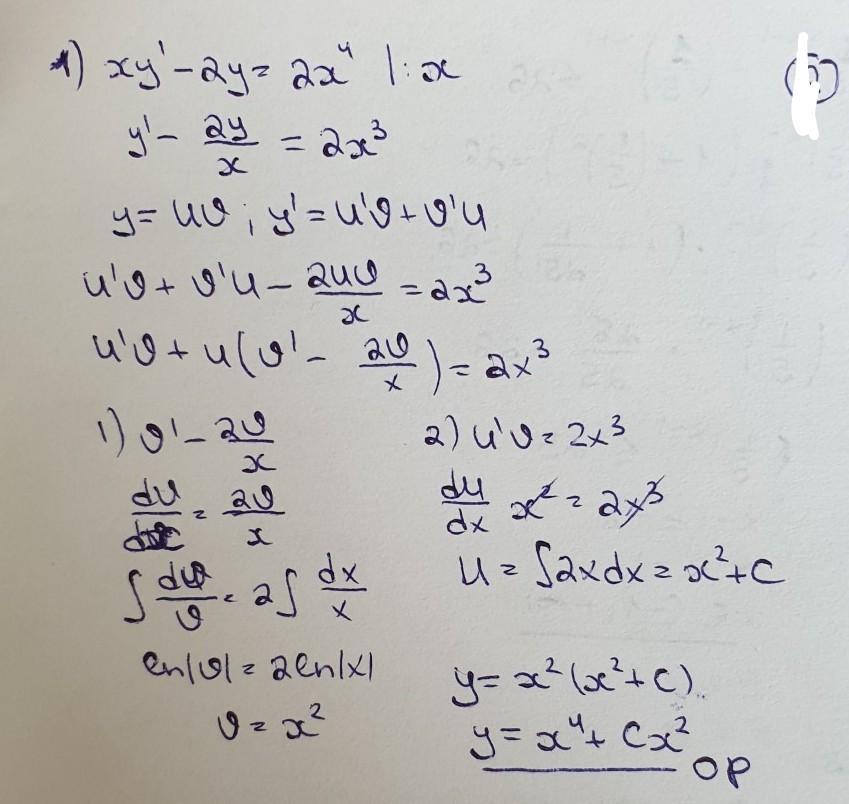 1) xy' - 2y = 2x⁴ |: x
y' - 2y/x = 2x³
y = uv ; y' = u'v + v'u
u'v + v'u - 2uv/x = 2x³
u'v + u(v' - 2v/x) = 2x³
1) v' - 2v/x
dv/dx = 2v/x
∫ dv/v = 2∫ dx/x
ln|v| = 2ln|x|
v = x²
2) u'v = 2x³
du/dx x² = 2x³
u = ∫2xdx = x² + C
y = x²(x² + C)
y = x⁴ + Cx²
OP